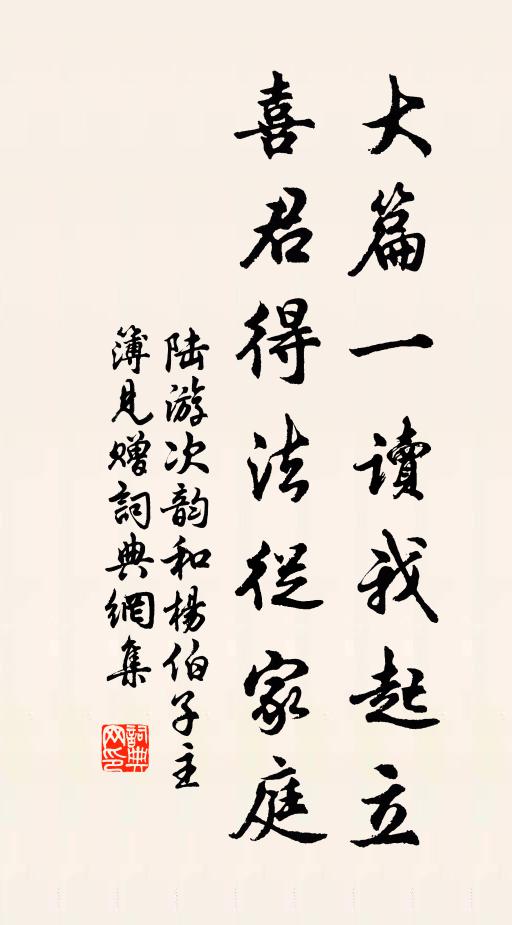 大篇一讀我起立
喜君得法從家庭
陸游次韵和楊伯子主
簿見贈詞典網集
詞典网印